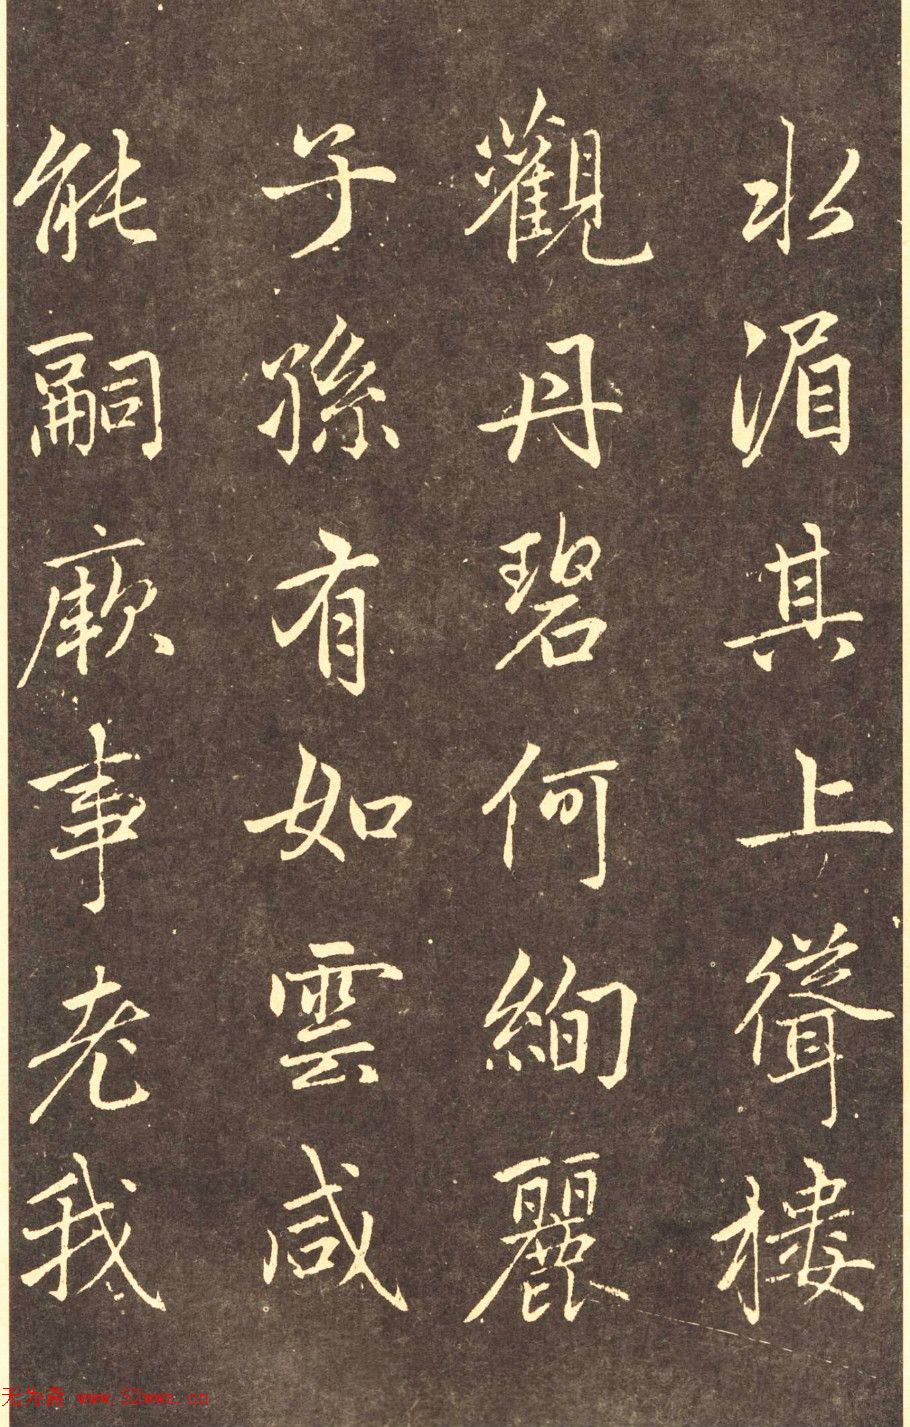 水湄其上聳樓
觀丹碧何絢麗
子孫有如雲咸
能嗣厥事老我
无为斋 www.51wwz.cn